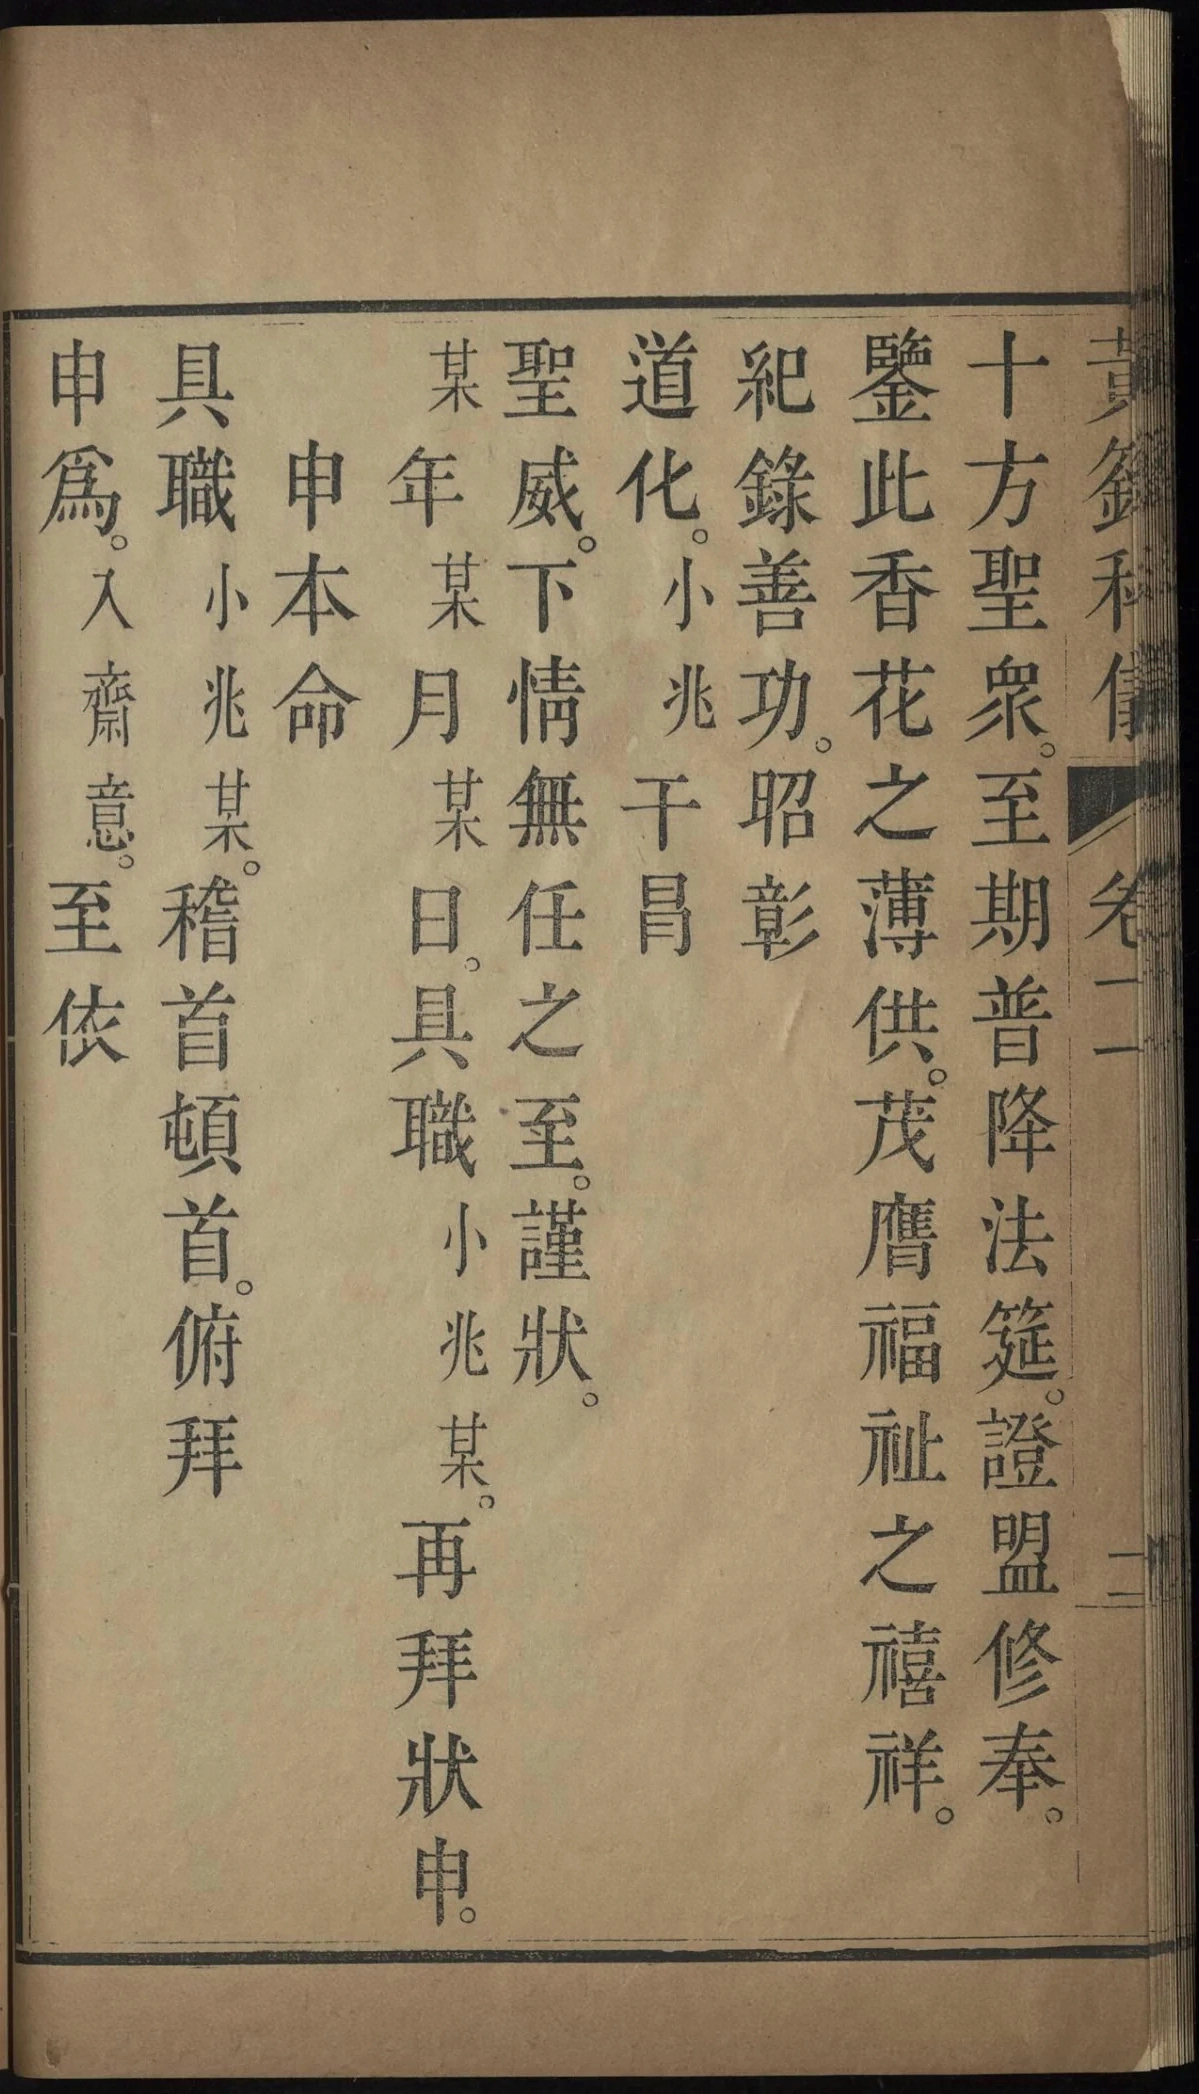 黃籙科儀 卷二 二
十方聖衆。至期普降法筵。證盟修奉。
鑒此香花之薄供。茂膺福祉之禧祥。
紀錄善功。昭彰
道化。小兆干冒
聖威。下情無任之至。謹狀。
某年某月某日。具職小兆某。再拜狀申。
申本命
具職小兆某。稽首頓首。俯拜
申爲。入齋意。至依